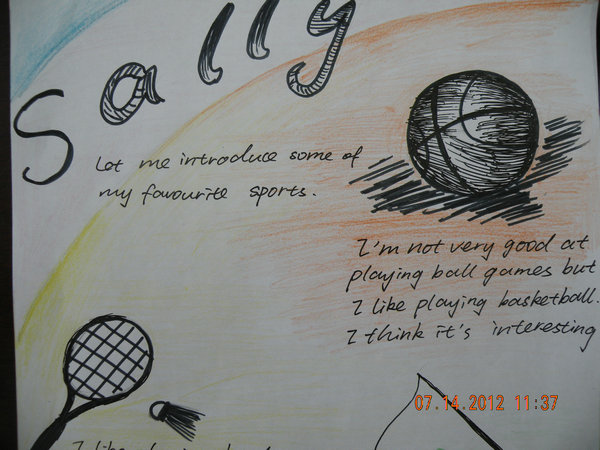 Sally
Let me introduce some of
my favourite sports.
I'm not very good at
playing ball games but
I like playing basketball.
I think it's interesting
07.14.2012 11:37
I like